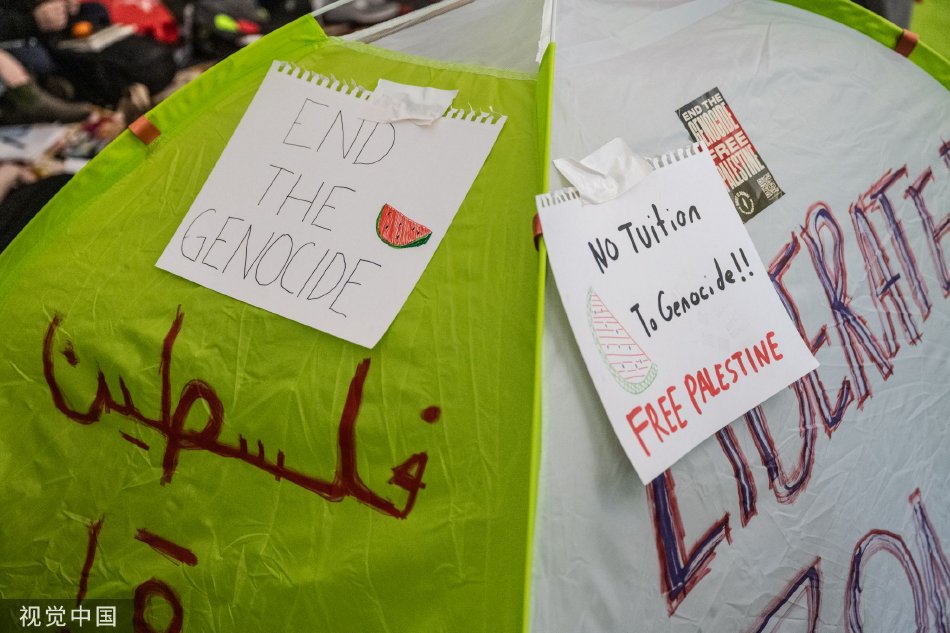 END
THE
GENOCIDE
NO TUiTiON
To GENocide!!
FREE PALESTINE
END THE
GENOCIDE
FREE
PALESTINE
فلسطين
LIBERATE
ZON
视觉中国